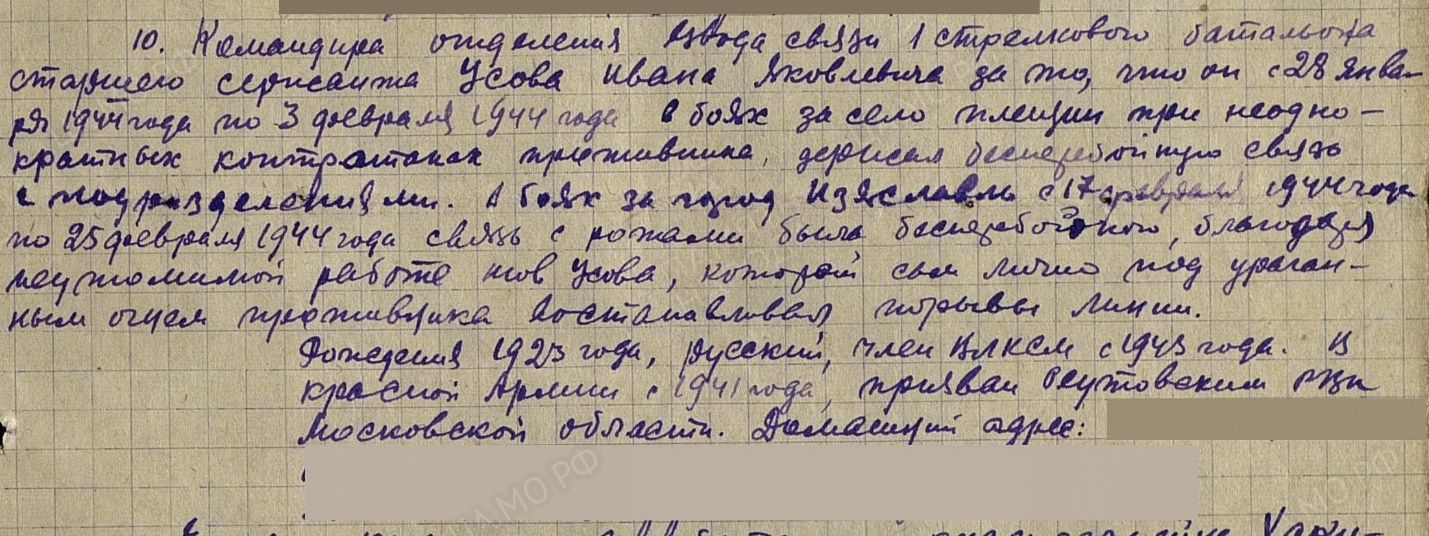 10. Командира отделения взвода связи 1 стрелкового батальона
старшего сержанта Усова Ивана Яковлевича за то, что он с 28 янва-
ря 1944 года по 3 февраля 1944 года в боях за село Плещин при неодно-
кратных контратаках противника, держал бесперебойную связь
с подразделениями. В боях за город Изяславль с 17 февраля 1944 года
по 25 февраля 1944 года связь с ротами была бесперебойного, благодаря
неутомимой работе тов Усова, который сам лично под ураган-
ным огнем противника востанавливал порывы линии.
Рождения 1923 года, русский, член ВЛКСМ с 1943 года. В
красной Армии с 1941 года, призван Реутовским РВК
Московской области. Домашний адрес:
ЦАМО РФ